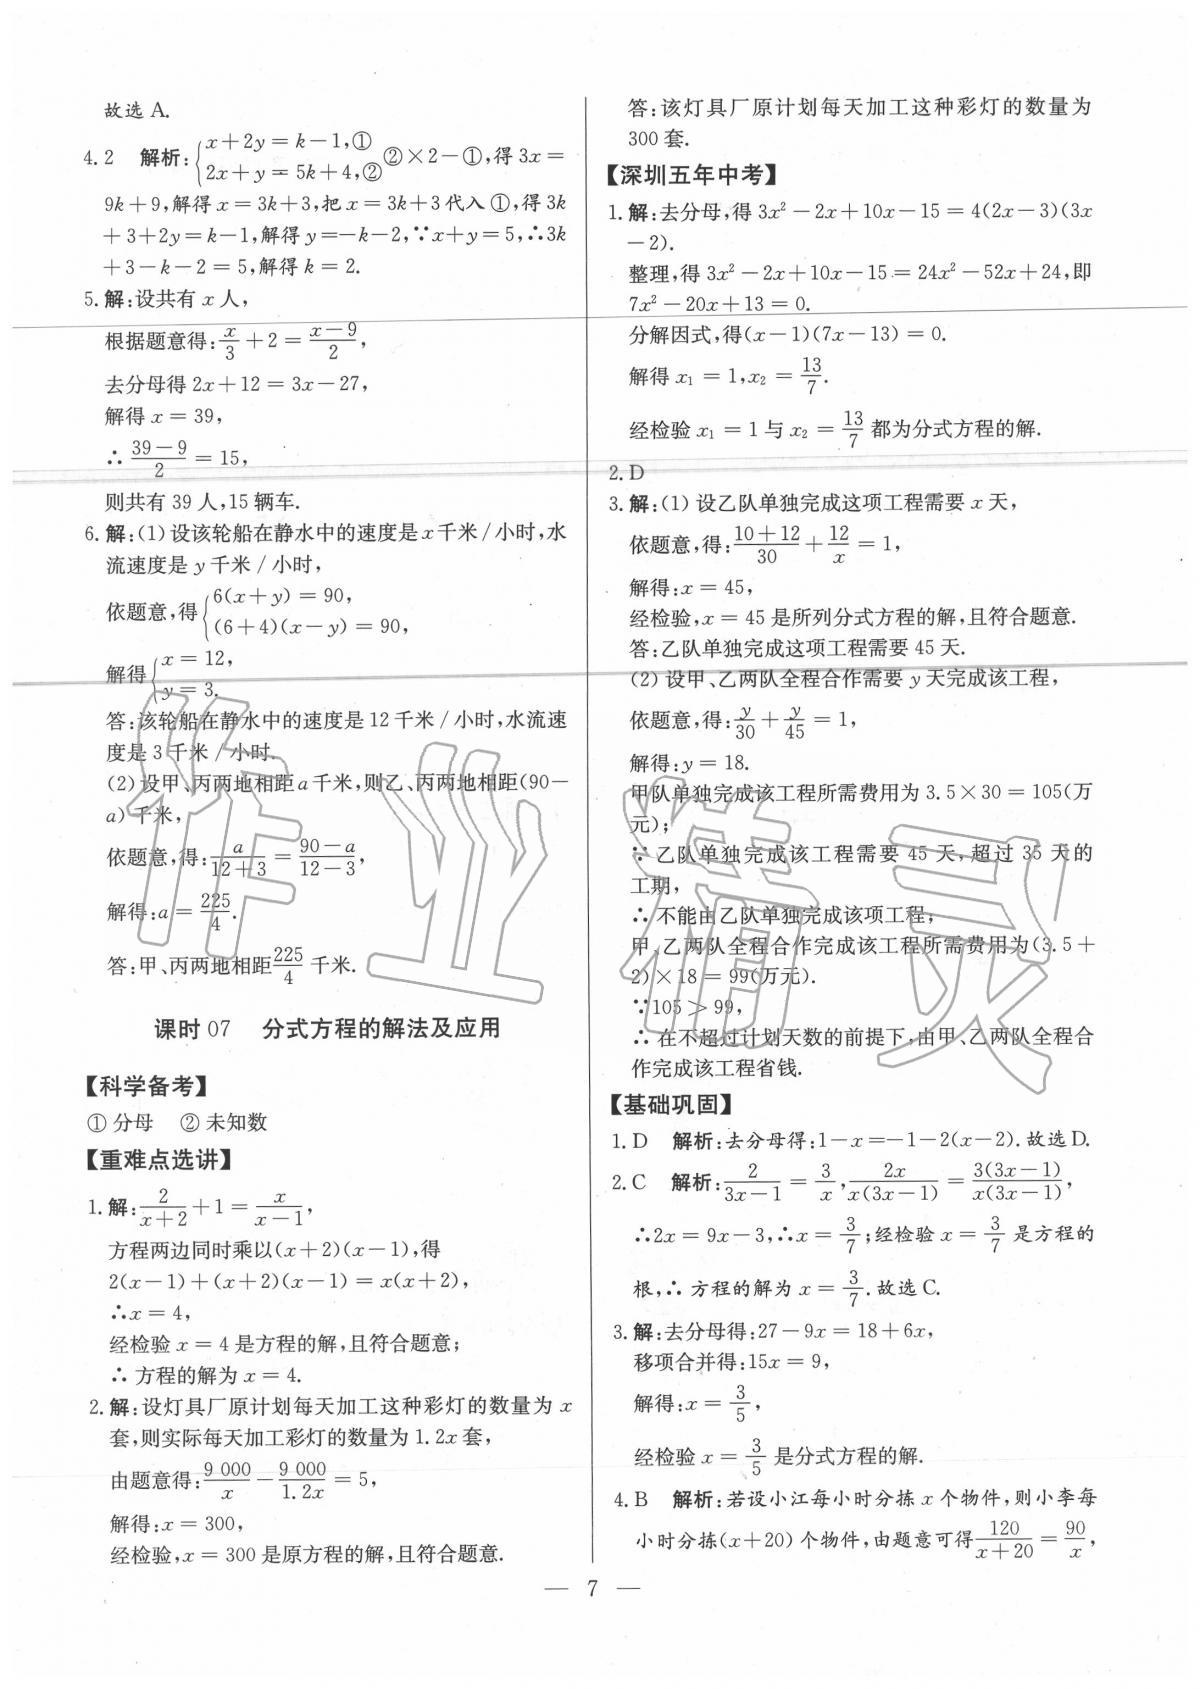 故选 A.
4. 2 解析:{x+2y=k-1,① 2x+y=5k+4,② ②×2-①,得 3x=
9k+9,解得 x=3k+3,把 x=3k+3 代入①,得 3k
+3+2y=k-1,解得 y=-k-2,∵x+y=5,∴3k
+3-k-2=5,解得 k=2.
5. 解:设共有 x 人,
根据题意得:x/3+2=(x-9)/2,
去分母得 2x+12=3x-27,
解得 x=39,
∴(39-9)/2=15,
则共有 39 人,15 辆车.
6. 解:(1)设该轮船在静水中的速度是 x 千米/小时,水
流速度是 y 千米/小时,
依题意,得{6(x+y)=90, (6+4)(x-y)=90,
解得{x=12, y=3.
答:该轮船在静水中的速度是 12 千米/小时,水流速
度是 3 千米/小时.
(2)设甲、丙两地相距 a 千米,则乙、丙两地相距(90-
a)千米,
依题意,得:a/(12+3)=(90-a)/(12-3),
解得:a=225/4.
答:甲、丙两地相距225/4千米.
课时 07 分式方程的解法及应用
【科学备考】
①分母 ②未知数
【重难点选讲】
1. 解:2/(x+2)+1=x/(x-1),
方程两边同时乘以(x+2)(x-1),得
2(x-1)+(x+2)(x-1)=x(x+2),
∴x=4,
经检验 x=4 是方程的解,且符合题意;
∴方程的解为 x=4.
2. 解:设灯具厂原计划每天加工这种彩灯的数量为 x
套,则实际每天加工彩灯的数量为 1.2x 套,
由题意得:9 000/x-9 000/1.2x=5,
解得:x=300,
经检验,x=300 是原方程的解,且符合题意.
答:该灯具厂原计划每天加工这种彩灯的数量为
300 套.
【深圳五年中考】
1. 解:去分母,得 3x²-2x+10x-15=4(2x-3)(3x
-2).
整理,得 3x²-2x+10x-15=24x²-52x+24,即
7x²-20x+13=0.
分解因式,得(x-1)(7x-13)=0.
解得 x₁=1,x₂=13/7.
经检验 x₁=1 与 x₂=13/7 都为分式方程的解.
2. D
3. 解:(1)设乙队单独完成这项工程需要 x 天,
依题意,得:(10+12)/30+12/x=1,
解得:x=45,
经检验,x=45 是所列分式方程的解,且符合题意.
答:乙队单独完成这项工程需要 45 天.
(2)设甲、乙两队全程合作需要 y 天完成该工程,
依题意,得:y/30+y/45=1,
解得:y=18.
甲队单独完成该工程所需费用为 3.5×30=105(万
元);
∵乙队单独完成该工程需要 45 天,超过 35 天的
工期,
∴不能由乙队单独完成该项工程;
甲、乙两队全程合作完成该工程所需费用为(3.5+
2)×18=99(万元).
∵105>99,
∴在不超过计划天数的前提下,由甲、乙两队全程合
作完成该工程省钱.
【基础巩固】
1. D 解析:去分母得:1-x=-1-2(x-2).故选D.
2. C 解析:2/(3x-1)=3/x,2x/x(3x-1)=3(3x-1)/x(3x-1),
∴2x=9x-3,∴x=3/7;经检验 x=3/7 是方程的
根,∴方程的解为 x=3/7.故选 C.
3. 解:去分母得:27-9x=18+6x,
移项合并得:15x=9,
解得:x=3/5,
经检验 x=3/5 是分式方程的解.
4. B 解析:若设小江每小时分拣 x 个物件,则小李每
小时分拣(x+20)个物件,由题意可得120/(x+20)=90/x,
— 7 —
作业精灵